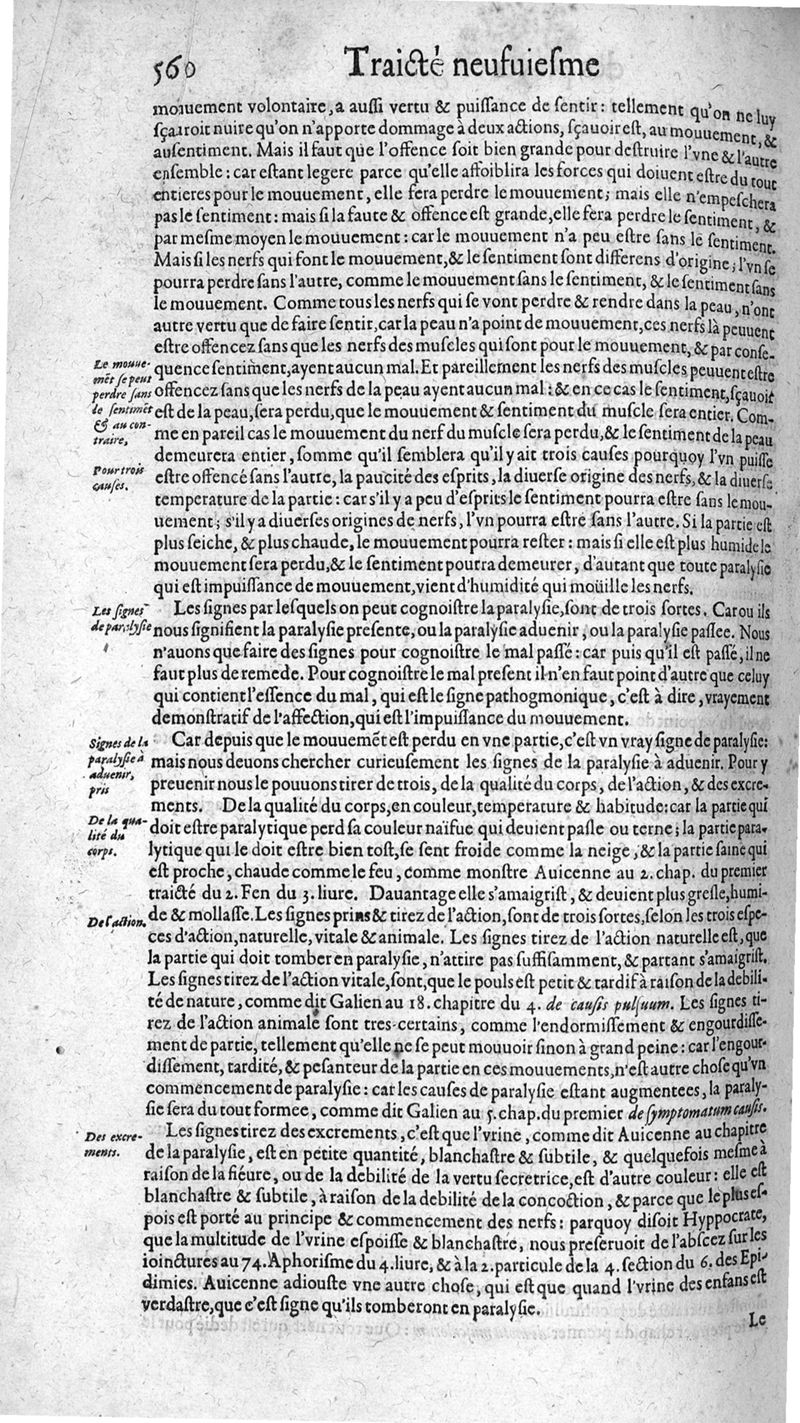 560
Traicté neufuieſme
mouuement volontaire, a auſſi vertu & puiſſance de ſentir : tellement qu'on ne luy
ſçauroit nuire qu'on n'apporte dommage à deux actions, ſçauoir eſt, au mouuement, &
au ſentiment. Mais il faut que l'offence ſoit bien grande pour deſtruire l'vne & l'autre
enſemble : car eſtant legere parce qu'elle affoiblira les forces qui doiuent eſtre du tout
entieres pour le mouuement, elle fera perdre le mouuement ; mais elle n'empeſchera
pas le ſentiment : mais ſi la faute & offence eſt grande, elle fera perdre le ſentiment, &
par meſme moyen le mouuement : car le mouuement n'a peu eſtre ſans le ſentiment.
Mais ſi les nerfs qui font le mouuement, & le ſentiment ſont differens d'origine ; l'vn ſe
pourra perdre ſans l'autre, comme le mouuement ſans le ſentiment, & le ſentiment ſans
le mouuement. Comme tous les nerfs qui ſe vont perdre & rendre dans la peau, n'ont
autre vertu que de faire ſentir, car la peau n'a point de mouuement, ces nerfs là peuuent
eſtre offencez ſans que les nerfs des muſcles qui ſont pour le mouuement, & par conſe-
quence ſentiment, ayent aucun mal. Et pareillement les nerfs des muſcles peuuent eſtre
offencez ſans que les nerfs de la peau ayent aucun mal : & en ce cas le ſentiment, ſçauoir
eſt de la peau, ſera perdu, que le mouuement & ſentiment du muſcle ſera entier. Com-
me en pareil cas le mouuement du nerf du muſcle ſera perdu, & le ſentiment de la peau
demeurera entier, ſomme qu'il ſemblera qu'il y ait trois cauſes pourquoy l'vn puiſſe
eſtre offencé ſans l'autre, la paucité des eſprits, la diuerſe origine des nerfs, & la diuerſe
temperature de la partie : car s'il y a peu d'eſprits le ſentiment pourra eſtre ſans le mou-
uement ; s'il y a diuerſes origines de nerfs, l'vn pourra eſtre ſans l'autre. Si la partie eſt
plus ſeiche, & plus chaude, le mouuement pourra reſter : mais ſi elle eſt plus humide le
mouuement ſera perdu, & le ſentiment pourra demeurer, d'autant que toute paralyſie
qui eſt impuiſſance de mouuement, vient d'humidité qui moüille les nerfs.
Le mouue-
mēt ſe peut
perdre ſans
le ſentimēt
& au con-
traire,
Pour trois
cauſes.
Les ſignes par leſquels on peut cognoiſtre la paralyſie, ſont de trois ſortes. Car ou ils
nous ſignifient la paralyſie preſente, ou la paralyſie aduenir, ou la paralyſie paſſee. Nous
n'auons que faire des ſignes pour cognoiſtre le mal paſſé : car puis qu'il eſt paſſé, il ne
faut plus de remede. Pour cognoiſtre le mal preſent il n'en faut point d'autre que celuy
qui contient l'eſſence du mal, qui eſt le ſigne pathogmonique, c'eſt à dire, vrayement
demonſtratif de l'affection, qui eſt l'impuiſſance du mouuement.
Les ſignes
de paralyſie
Car depuis que le mouuemēt eſt perdu en vne partie, c'eſt vn vray ſigne de paralyſie:
mais nous deuons chercher curieuſement les ſignes de la paralyſie à aduenir. Pour y
preuenir nous le pouuons tirer de trois, de la qualité du corps, de l'action, & des excre-
ments. De la qualité du corps, en couleur, temperature & habitude: car la partie qui
doit eſtre paralytique perd ſa couleur naïfue qui deuient paſle ou terne ; la partie para-
lytique qui le doit eſtre bien toſt, ſe ſent froide comme la neige, & la partie ſaine qui
eſt proche, chaude comme le feu, comme monſtre Auicenne au 2. chap. du premier
traicté du 2. Fen du 3. liure. Dauantage elle s'amaigriſt, & deuient plus greſle, humi-
de & mollaſſe. Les ſignes prins & tirez de l'action, ſont de trois ſortes, ſelon les trois eſpe-
ces d'action, naturelle, vitale & animale. Les ſignes tirez de l'action naturelle eſt, que
la partie qui doit tomber en paralyſie, n'attire pas ſuffiſamment, & partant s'amaigriſt.
Les ſignes tirez de l'action vitale, ſont, que le pouls eſt petit & tardif à raiſon de la debili-
té de nature, comme dit Galien au 18. chapitre du 4. de cauſis pulſuum. Les ſignes ti-
rez de l'action animale ſont tres-certains, comme l'endormiſſement & engourdiſſe-
ment de partie, tellement qu'elle ne ſe peut mouuoir ſinon à grand peine : car l'engour-
diſſement, tardité, & peſanteur de la partie en ces mouuements, n'eſt autre choſe qu'vn
commencement de paralyſie : car les cauſes de paralyſie eſtant augmentees, la paraly-
ſie ſera du tout formee, comme dit Galien au 5. chap. du premier de ſymptomatum cauſis.
Signes de la
paralyſie à
aduenir,
pris
De la qua-
lité du
corps.
De l'action.
Les ſignes tirez des excrements, c'eſt que l'vrine, comme dit Auicenne au chapitre
de la paralyſie, eſt en petite quantité, blanchaſtre & ſubtile, & quelquefois meſme à
raiſon de la fiéure, ou de la debilité de la vertu ſecretrice, eſt d'autre couleur : elle eſt
blanchaſtre & ſubtile, à raiſon de la debilité de la concoction, & parce que le plus eſ-
pois eſt porté au principe & commencement des nerfs : parquoy diſoit Hyppocrate,
que la multitude de l'vrine eſpoiſſe & blanchaſtre, nous preſeruoit de l'abſcez ſur les
ioinctures au 74. Aphoriſme du 4. liure, & à la 2. particule de la 4. ſection du 6. des Epi-
dimies. Auicenne adiouſte vne autre choſe, qui eſt que quand l'vrine des enfans eſt
verdaſtre, que c'eſt ſigne qu'ils tomberont en paralyſie.
Des excre-
ments.
Le